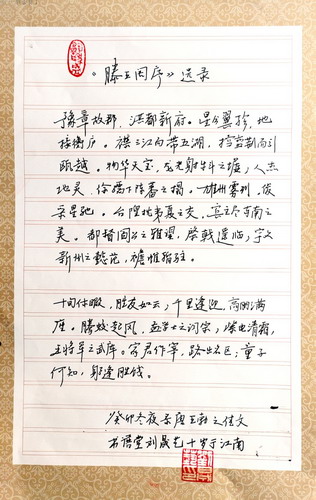 《滕王阁序》选录
豫章故郡，洪都新府。星分翼轸，地
接衡庐。襟三江而带五湖，控蛮荆而引
瓯越。物华天宝，龙光射牛斗之墟；人杰
地灵，徐孺下陈蕃之榻。雄州雾列，俊
采星驰。台隍枕夷夏之交，宾主尽东南之
美。都督阎公之雅望，棨戟遥临；宇文
新州之懿范，襜帷暂驻。
十旬休暇，胜友如云；千里逢迎，高朋满
座。腾蛟起凤，孟学士之词宗；紫电清霜，
王将军之武库。家君作宰，路出名区；童子
何知，躬逢胜饯。
癸卯冬夜录唐王勃之佳文
书语堂刘晟七十岁于江南